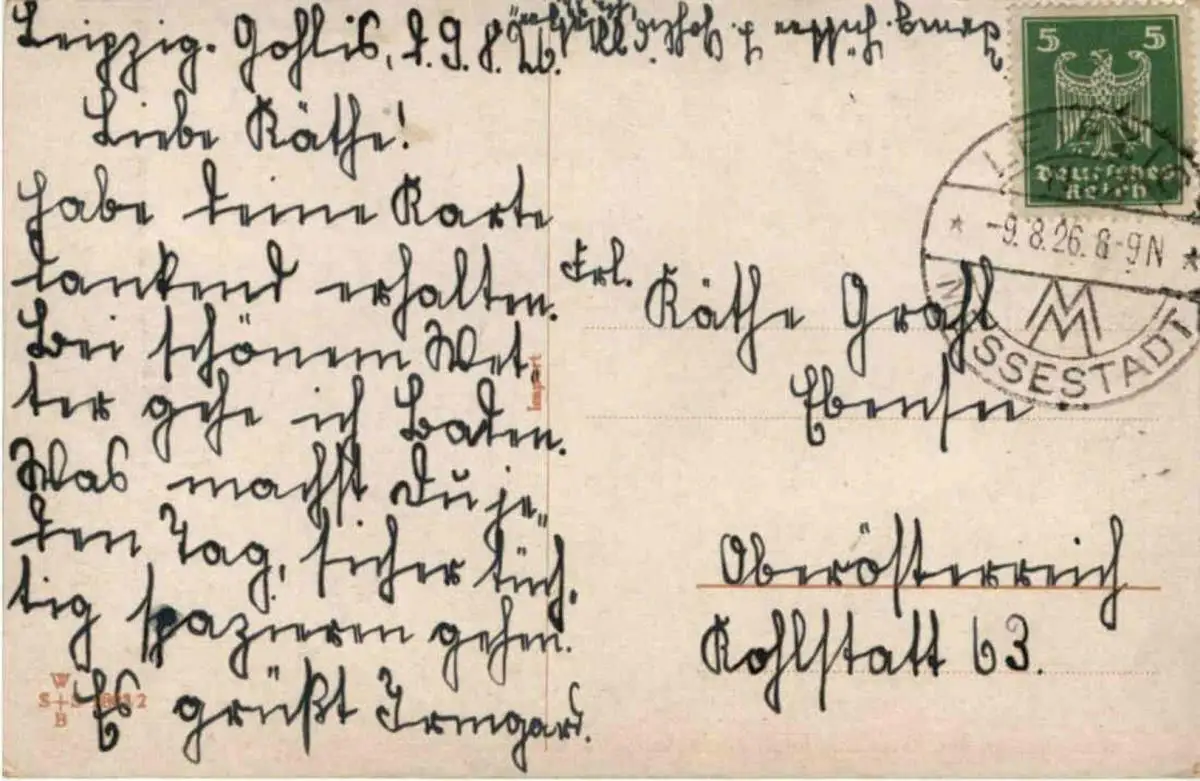 Leipzig-Gohlis, d. 9. 8. 26.
Liebe Käthe!
Habe deine Karte
dankend erhalten.
Bei schönem Wet-
ter gehe ich Baden.
Was machst Du je-
den Tag, sicher tüch-
tig spazieren gehen.
Es grüßt Irmgard.
Import
W
S+S 2
B
5 5
Deutsches
Reich
LEIPZIG
-9.8.26.8-9N
M
MESSESTADT
Frl.
Käthe Grahl
Ebensee
Oberösterreich
Kohlstatt 63.